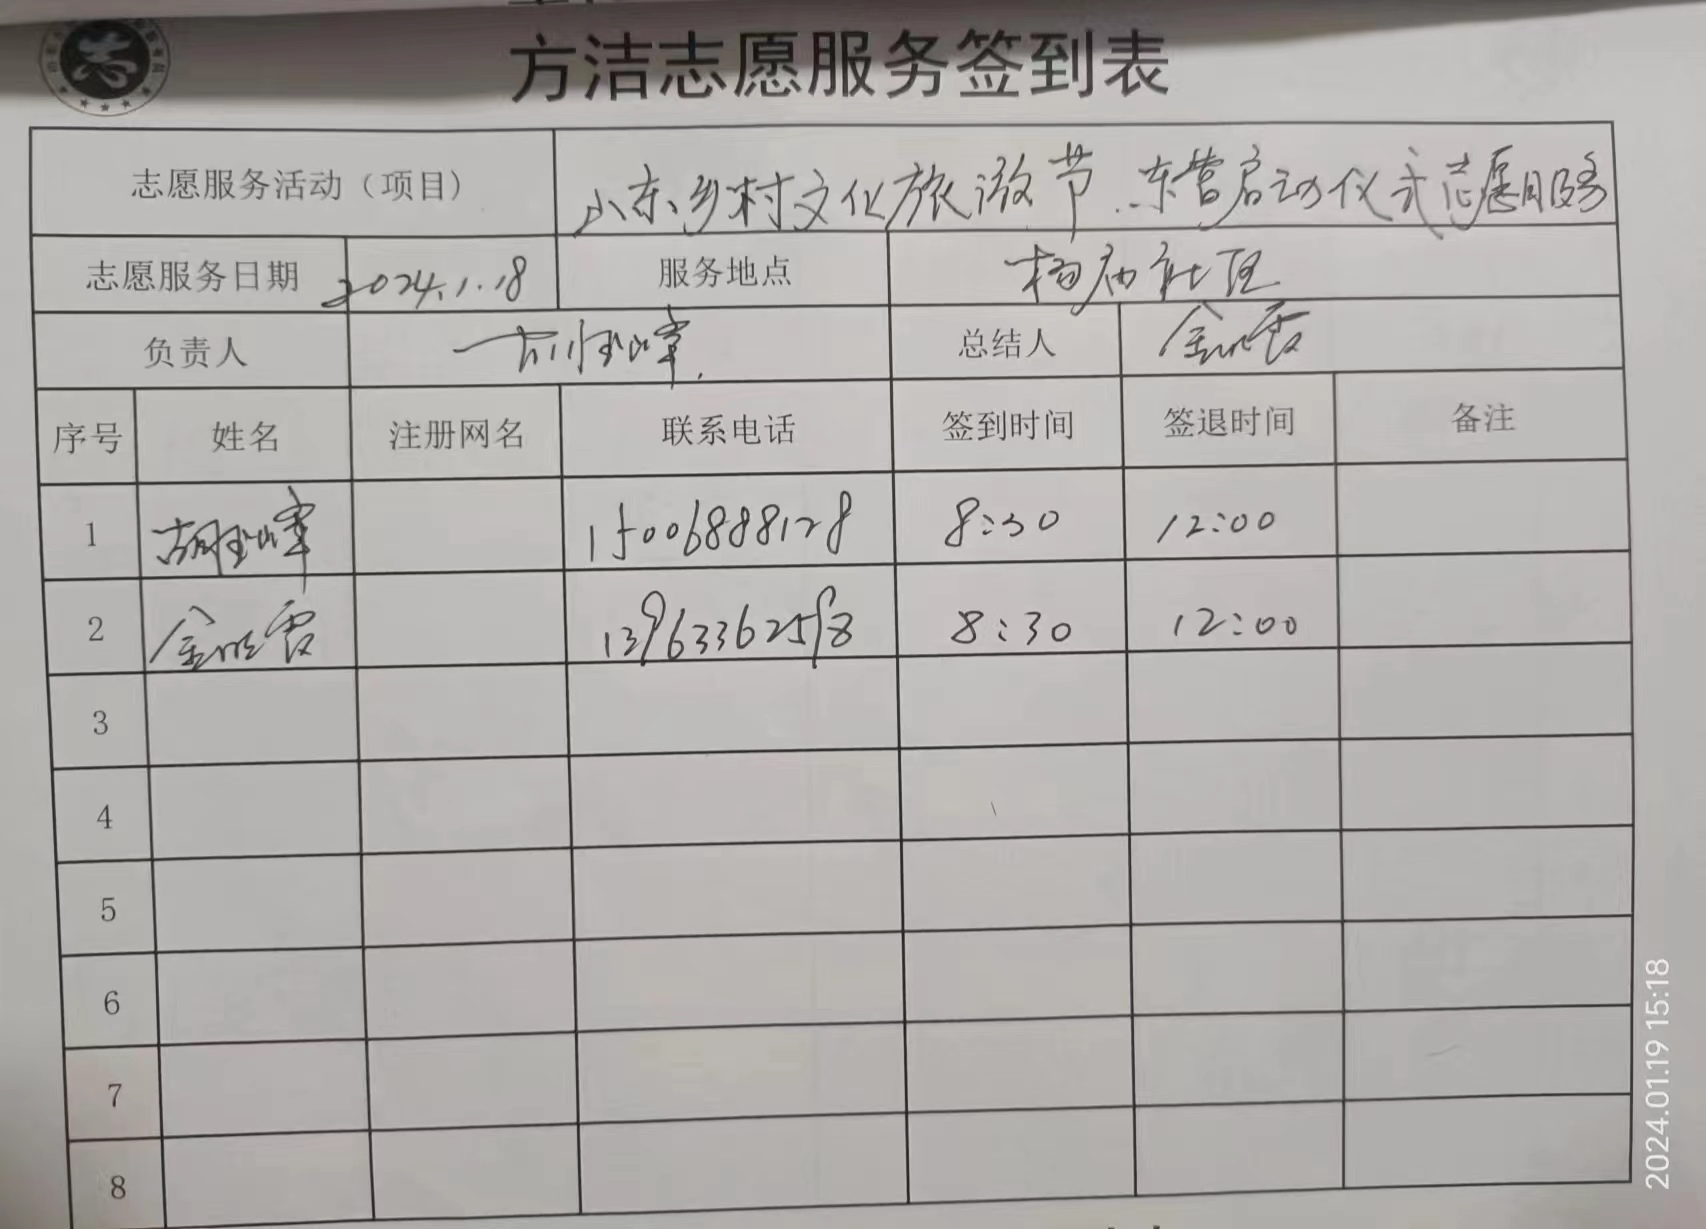 方洁志愿服务签到表
志愿服务活动（项目） 山东乡村文化旅游节.东营启动仪式志愿服务
志愿服务日期 2024.1.18 服务地点 杨庙社区
负责人 胡玉峰 总结人 金晓霞
序号 姓名 注册网名 联系电话 签到时间 签退时间 备注
1 胡玉峰 15006888128 8:30 12:00
2 金晓霞 13963362598 8:30 12:00
3
4
5
6
7
8
2024.01.19 15:18